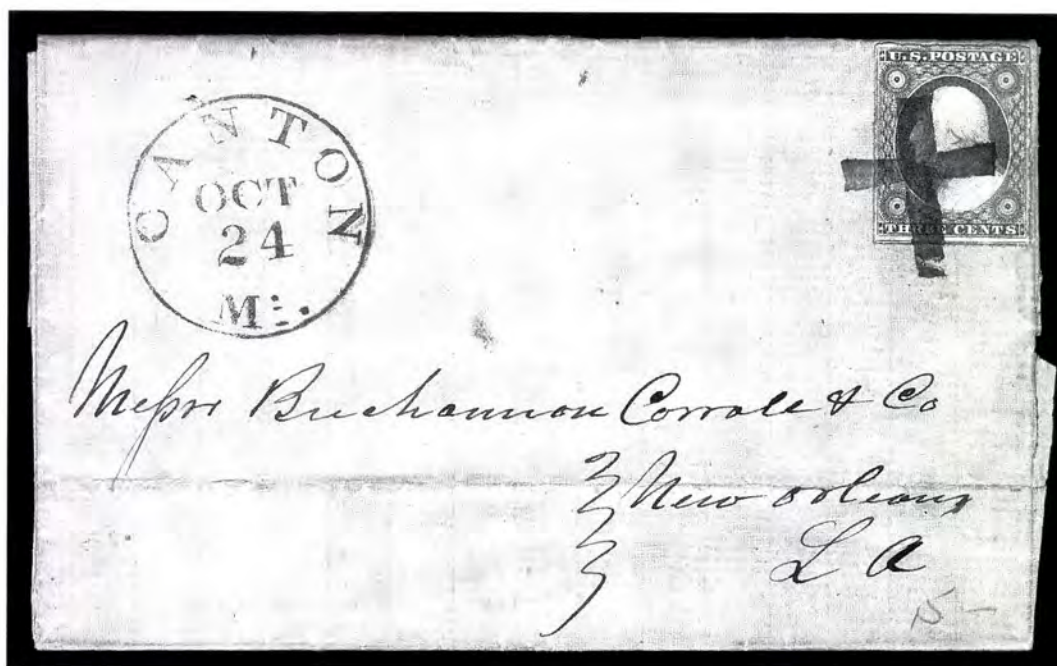 U.S.POSTAGE
THREE CENTS
CANTON
OCT
24
Mi.
Messrs Buchannon Corrole & Co
New Orleans
LA
15 –